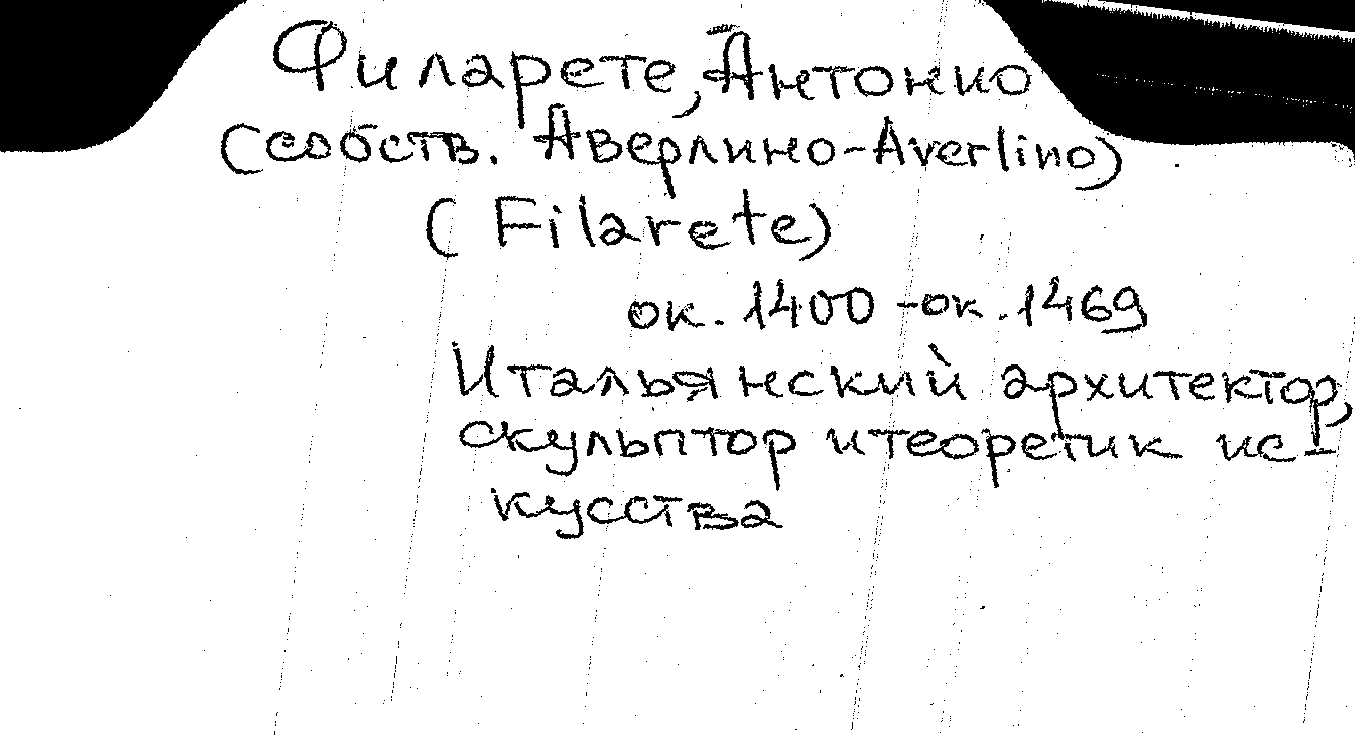 Филарете, Антонио
(собств. Аверлино-Averlino)
( Filarete)
ок. 1400 - ок. 1469
Итальянский архитектор,
скульптор и теоретик ис-
кусства